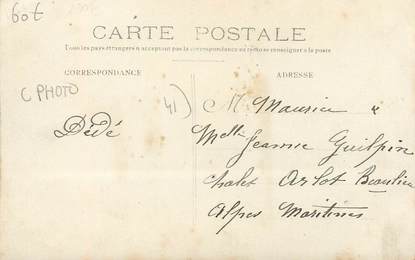 60t
CARTE POSTALE
Tous les pays étrangers n'acceptent pas la correspondance au recto se renseigner à la poste
CORRESPONDANCE
ADRESSE
C PHOTO
41)
M. Maurice "
Dédé
Melle Jeanne Guilpin
chalet Arlot Beaulieu
Alpes Maritimes